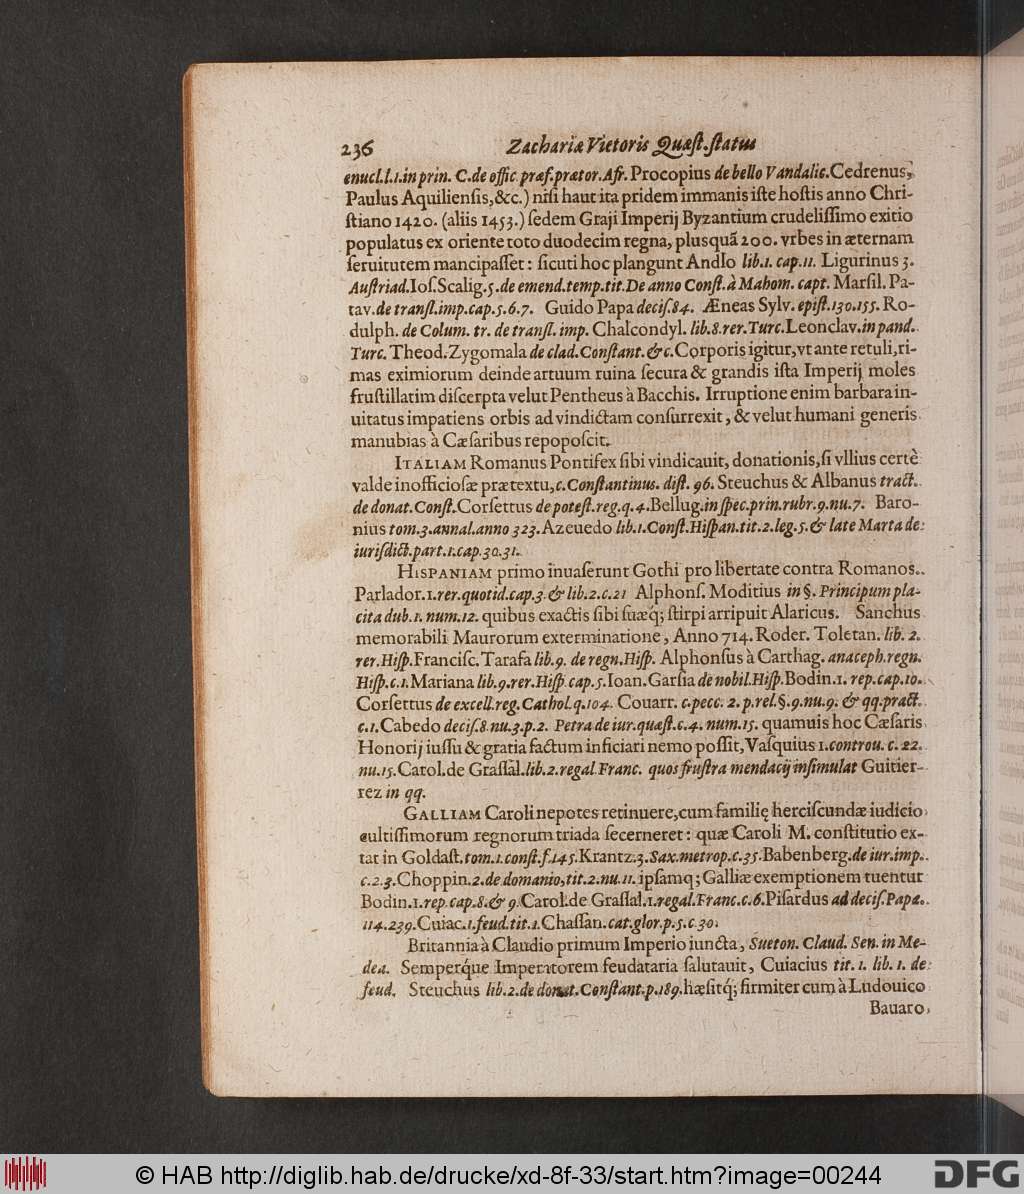 236 Zachariæ Vietoris Quæſt. ſtatus
enucl.l.1.in prin. C.de offic. præf.prætor.Afr. Procopius de bello Vandalic.Cedrenus,
Paulus Aquilienſis,&c.) niſi haut ita pridem immanis iſte hoſtis anno Chri-
ſtiano 1420. (aliis 1453.) ſedem Graji Imperij Byzantium crudeliſſimo exitio
populatus ex oriente toto duodecim regna, plusquã 200. vrbes in æternam
ſeruitutem mancipaſſet: ſicuti hoc plangunt Andlo lib.1. cap.11. Ligurinus 3.
Auſtriad.Ioſ.Scalig.5.de emend.temp.tit.De anno Conſt.à Mahom. capt. Marſil. Pa-
tav.de tranſl.imp.cap.5.6.7. Guido Papa deciſ.84. Æneas Sylv. epiſt.130.155. Ro-
dulph. de Colum. tr. de tranſl. imp. Chalcondyl. lib.8.rer.Turc.Leonclav.in pand.
Turc. Theod.Zygomala de clad.Conſtant.&c.Corporis igitur,vt ante retuli,ri-
mas eximiorum deinde artuum ruina ſecura & grandis iſta Imperij moles
fruſtillatim diſcerpta velut Pentheus à Bacchis. Irruptione enim barbara in-
uitatus impatiens orbis ad vindictam conſurrexit, & velut humani generis
manubias à Cæſaribus repopoſcit.
ITALIAM Romanus Pontifex ſibi vindicauit, donationis,ſi vllius certè
valde inofficioſæ prætextu,c.Conſtantinus. diſt. 96. Steuchus & Albanus tract.
de donat.Conſt.Corſettus de poteſt.reg.q.4.Bellug.in ſpec.prin.rubr.9.nu.7. Baro-
nius tom.3.annal.anno 323.Azeuedo lib.1.Conſt.Hiſpan.tit.2.leg.5.& late Marta de
iuriſdict.part.1.cap.30.31.
HISPANIAM primo inuaſerunt Gothi pro libertate contra Romanos.
Parlador.1.rer.quotid.cap.3.& lib.2.c.21 Alphonſ. Moditius in §. Principum pla-
cita dub.1.num.12. quibus exactis ſibi ſuæq́; ſtirpi arripuit Alaricus. Sanchus
memorabili Maurorum exterminatione, Anno 714. Roder. Toletan. lib. 2.
rer.Hiſp.Franciſc.Tarafa lib.9. de regn.Hiſp. Alphonſus à Carthag. anaceph.regn.
Hiſp.c.1.Mariana lib.9.rer.Hiſp.cap.5.Ioan.Garſia de nobil.Hiſp.Bodin.1. rep.cap.10.
Corſettus de excell.reg.Cathol.q.104. Couarr. c.pecc. 2. p.rel.§.9.nu.9. & qq.pract.
c.1.Cabedo deciſ.8.nu.3.p.2. Petra de iur.quæſt.c.4. num.15. quamuis hoc Cæſaris
Honorij iuſſu & gratia factum inficiari nemo poſſit, Vaſquius 1.controu. c. 22.
nu.15.Carol.de Graſſal.lib.2.regal.Franc. quos fruſtra mendacij inſimulat Guitier-
rez in qq.
GALLIAM Caroli nepotes retinuere,cum familię herciſcundæ iudicio
cultiſſimorum regnorum triada ſecerneret: quæ Caroli M. conſtitutio ex-
tat in Goldaſt.tom.1.conſt.f.145.Krantz.3.Sax.metrop.c.35.Babenberg.de iur.imp.
c.2.3.Choppin.2.de domanio,tit.2.nu.11. ipſamq; Galliæ exemptionem tuentur
Bodin.1.rep.cap.8.& 9.Carol.de Graſſal.1.regal.Franc.c.6.Piſardus ad deciſ.Papæ.
114.239.Cuiac.1.feud.tit.1.Chaſſan.cat.glor.p.5.c.30.
Britannia à Claudio primum Imperio iuncta, Sueton. Claud. Sen. in Me-
dea. Semperq́ue Imperatorem feudataria ſalutauit, Cuiacius tit. 1. lib. 1. de
feud. Steuchus lib.2.de donat.Conſtant.p.189.hæſitq́; firmiter cum à Ludouico
Bauaro
© HAB http://diglib.hab.de/drucke/xd-8f-33/start.htm?image=00244
DFG